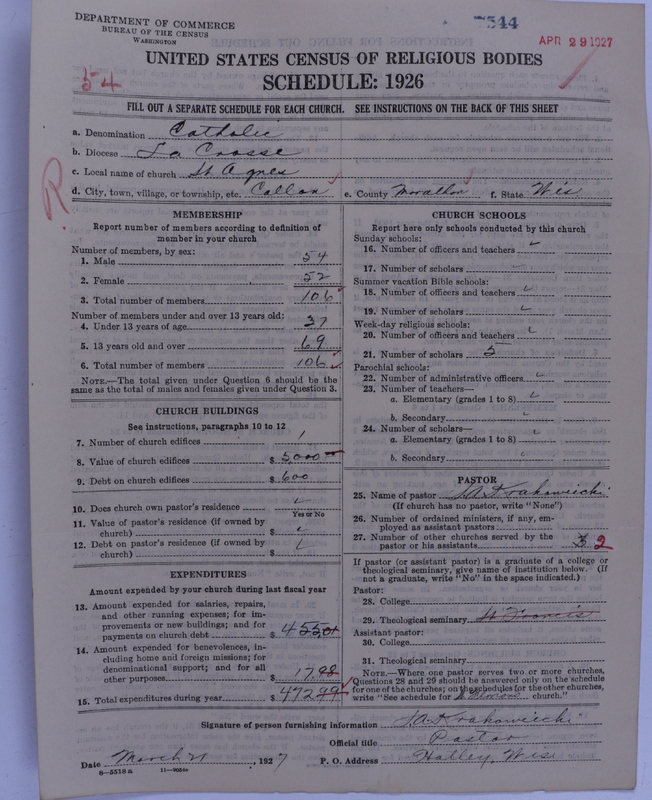 DEPARTMENT OF COMMERCE
BUREAU OF THE CENSUS
WASHINGTON
7544
APR 29 1927
UNITED STATES CENSUS OF RELIGIOUS BODIES
SCHEDULE: 1926
54
FILL OUT A SEPARATE SCHEDULE FOR EACH CHURCH. SEE INSTRUCTIONS ON THE BACK OF THIS SHEET
a. Denomination Catholic
b. Diocese La Crosse
c. Local name of church St Agnes
d. City, town, village, or township, etc. Callon e. County Marathon f. State Wis
R
MEMBERSHIP
Report number of members according to definition of
member in your church
Number of members, by sex:
1. Male 54
2. Female 52
3. Total number of members 106
Number of members under and over 13 years old:
4. Under 13 years of age 37
5. 13 years old and over 69
6. Total number of members 106
NOTE.—The total given under Question 6 should be the
same as the total of males and females given under Question 3.
CHURCH BUILDINGS
See instructions, paragraphs 10 to 12
7. Number of church edifices 1
8. Value of church edifices $ 5,000
9. Debt on church edifices $ 600
10. Does church own pastor's residence
Yes or No
11. Value of pastor's residence (if owned by
church) $
12. Debt on pastor's residence (if owned by
church) $
EXPENDITURES
Amount expended by your church during last fiscal year
13. Amount expended for salaries, repairs,
and other running expenses; for im-
provements or new buildings; and for
payments on church debt $
14. Amount expended for benevolences, in-
cluding home and foreign missions; for
denominational support; and for all
other purposes $ 17.98
15. Total expenditures during year $
CHURCH SCHOOLS
Report here only schools conducted by this church
Sunday schools:
16. Number of officers and teachers
17. Number of scholars
Summer vacation Bible schools:
18. Number of officers and teachers
19. Number of scholars
Week-day religious schools:
20. Number of officers and teachers
21. Number of scholars 5
Parochial schools:
22. Number of administrative officers
23. Number of teachers—
a. Elementary (grades 1 to 8)
b. Secondary
24. Number of scholars—
a. Elementary (grades 1 to 8)
b. Secondary
PASTOR
25. Name of pastor
(If church has no pastor, write "None")
26. Number of ordained ministers, if any, em-
ployed as assistant pastors
27. Number of other churches served by the
pastor or his assistants 3 2
If pastor (or assistant pastor) is a graduate of a college or
theological seminary, give name of institution below. (If
not a graduate, write "No" in the space indicated.)
Pastor:
28. College
29. Theological seminary St Francis
Assistant pastor:
30. College
31. Theological seminary
NOTE.—Where one pastor serves two or more churches,
Questions 28 and 29 should be answered only on the schedule
for one of the churches; on the schedules for the other churches,
write "See schedule for church."
Signature of person furnishing information
Official title Pastor
Date March 21, 1927 P. O. Address Hatley, Wis
8-5518 a